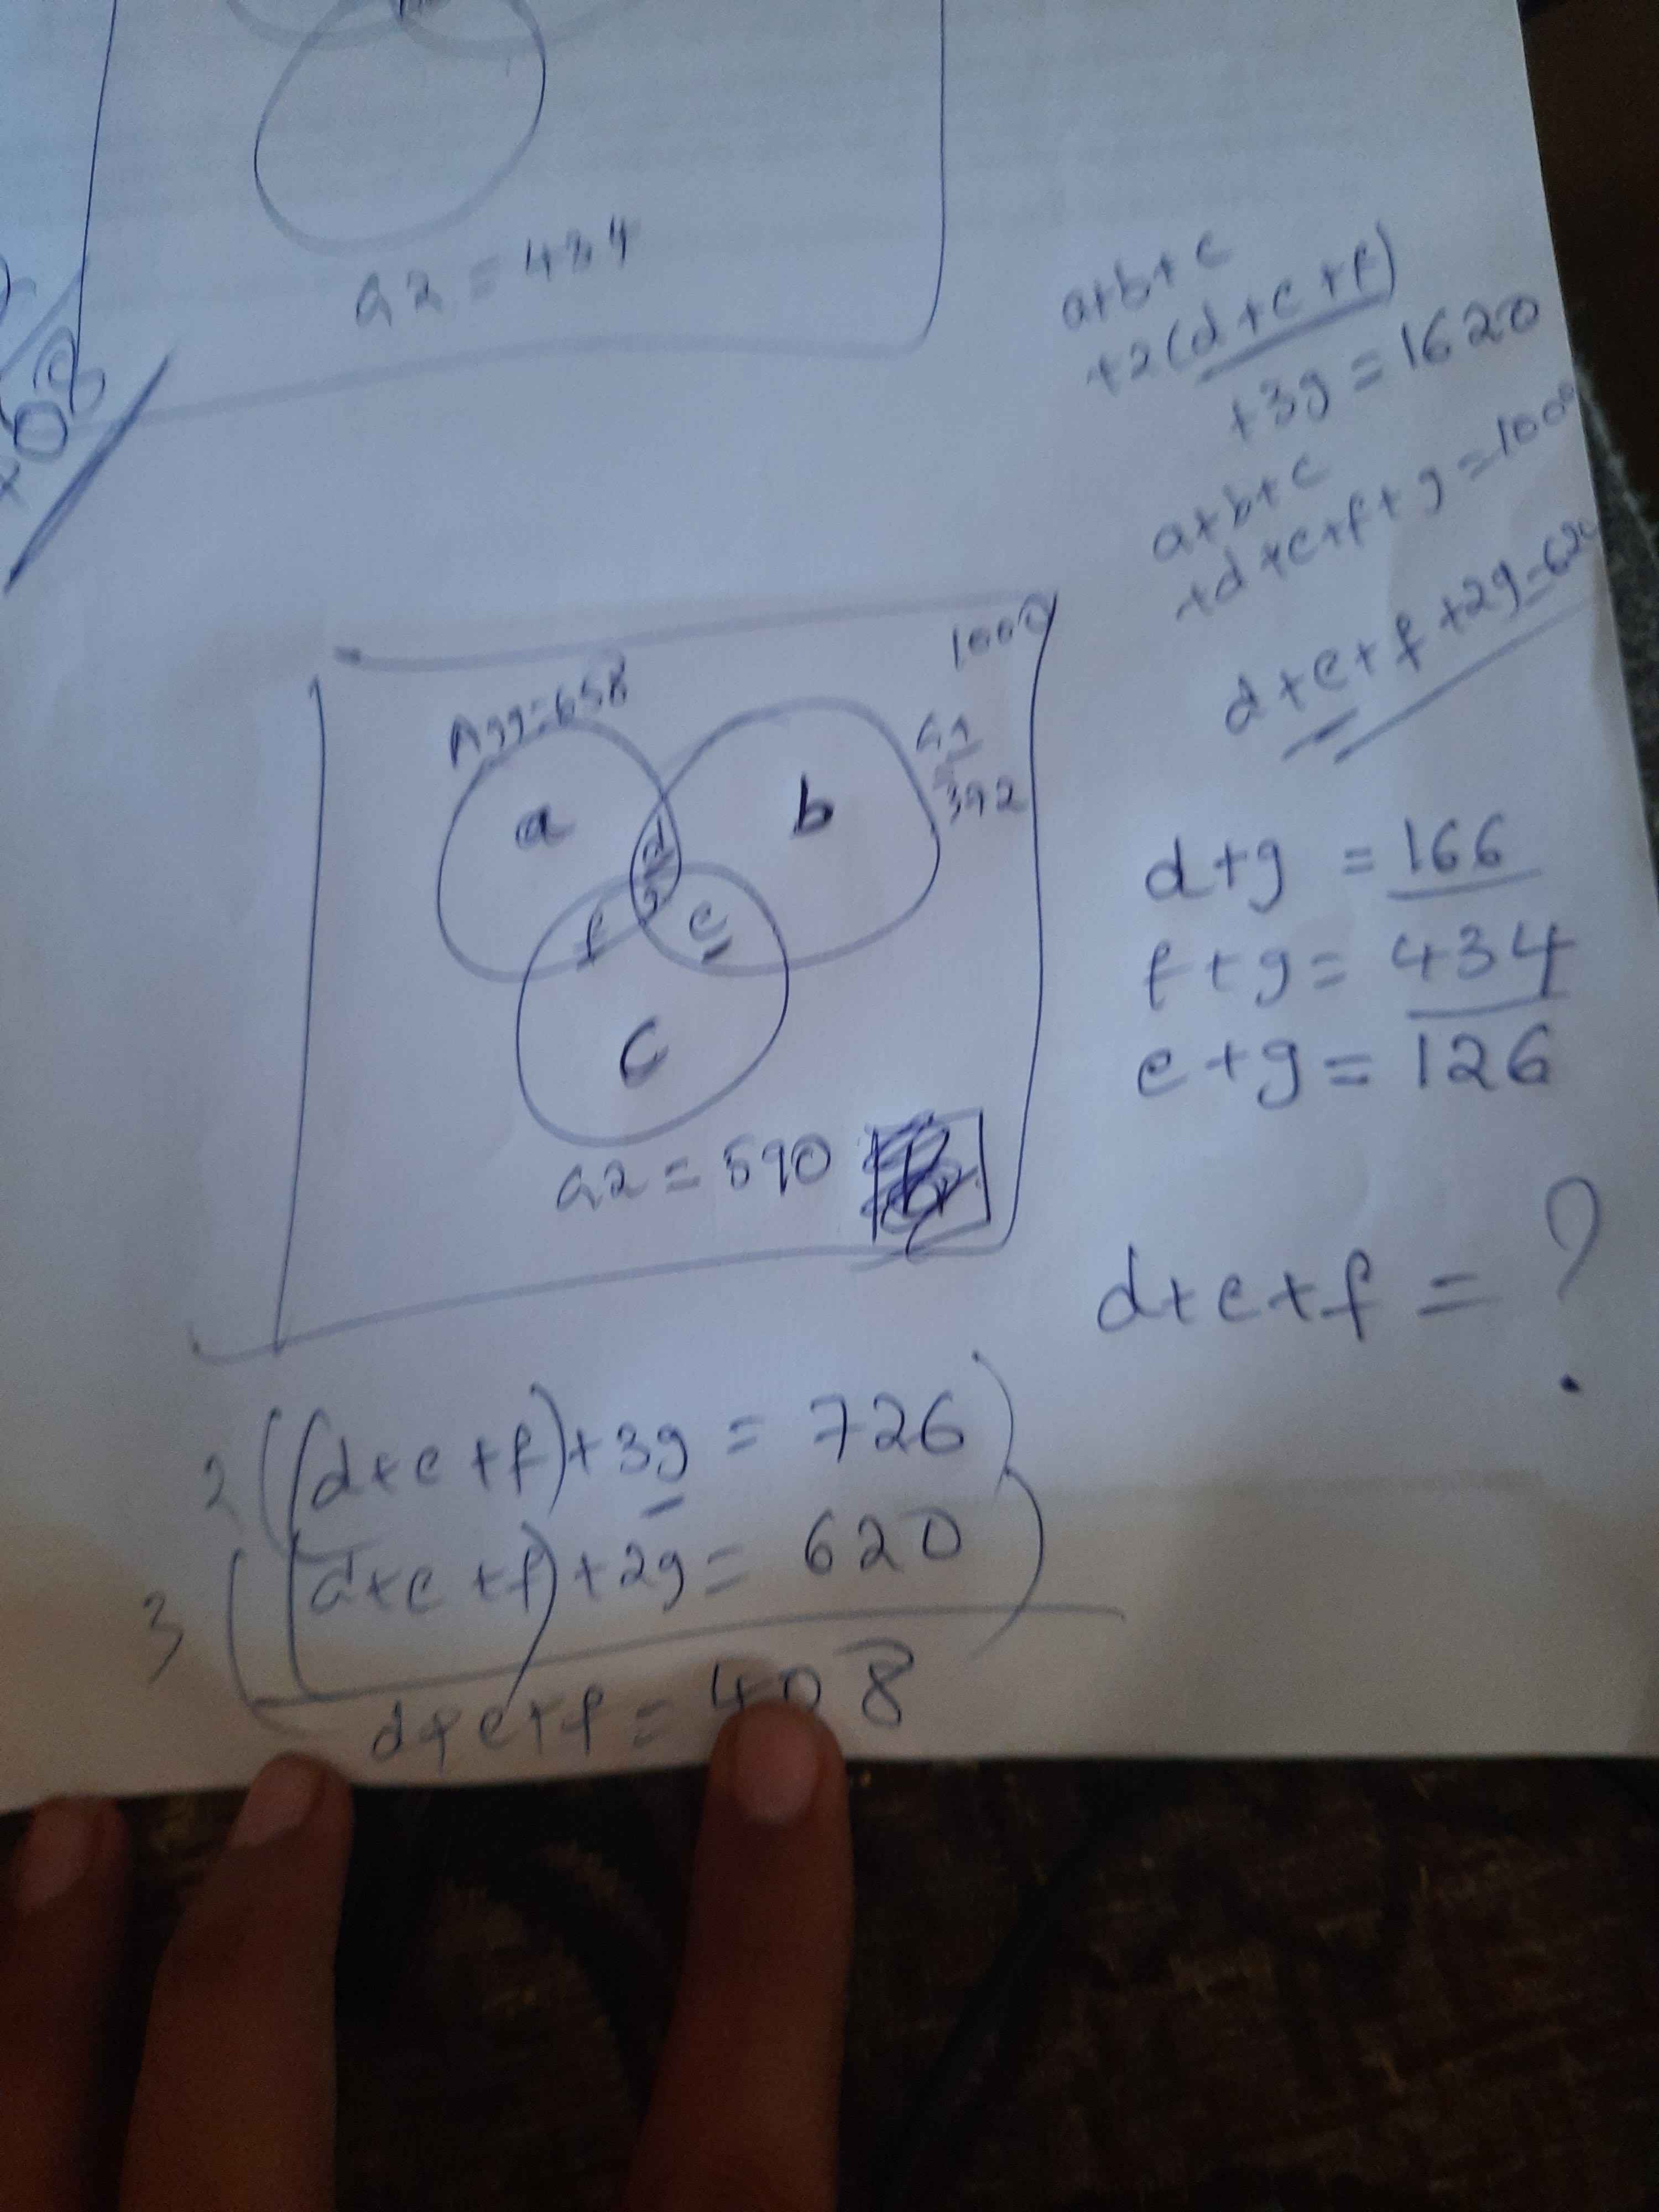 a2 = 434
08
a+b+c
+2(d+e+f)
+3g = 1620
a+b+c
+d+e+f+g=1000
d+e+f+2g=620
1000
Agg=658
G1
392
a
b
d
g
f
e
C
G2 = 590
d+g = 166
f+g = 434
e+g = 126
d+e+f = ?
2((d+e+f)+3g = 726)
3((d+e+f)+2g = 620)
d+e+f = 408